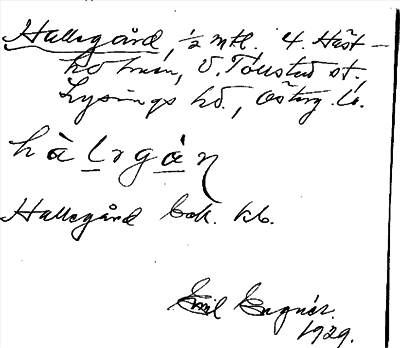 Hallsgård, ½ mtl. 4. Häst-
holmen, V. Tollstad sn.,
Lysings hd., Östg. l.
hàlrgán
Hallsgård Cok. kb.
Emil Engnér.
1929.